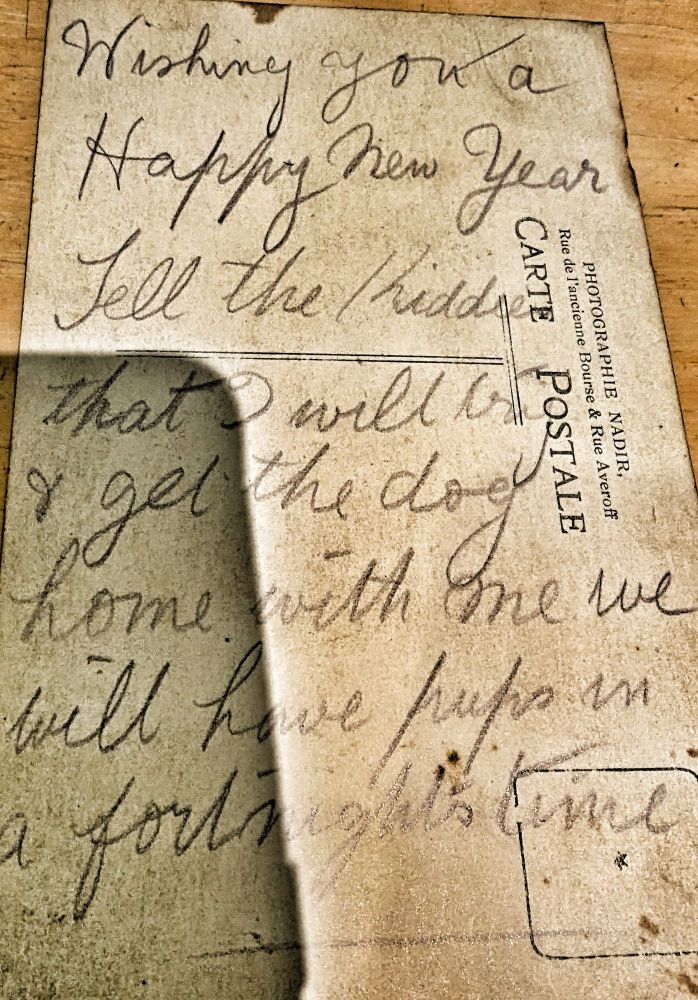 Wishing you a
Happy New Year
Tell the Kiddies
that I will try
& get the dog
home with me we
will have pups in
a fortnights time
CARTE POSTALE
Rue de l'ancienne Bourse & Rue Averoff
PHOTOGRAPHIE NADIR,